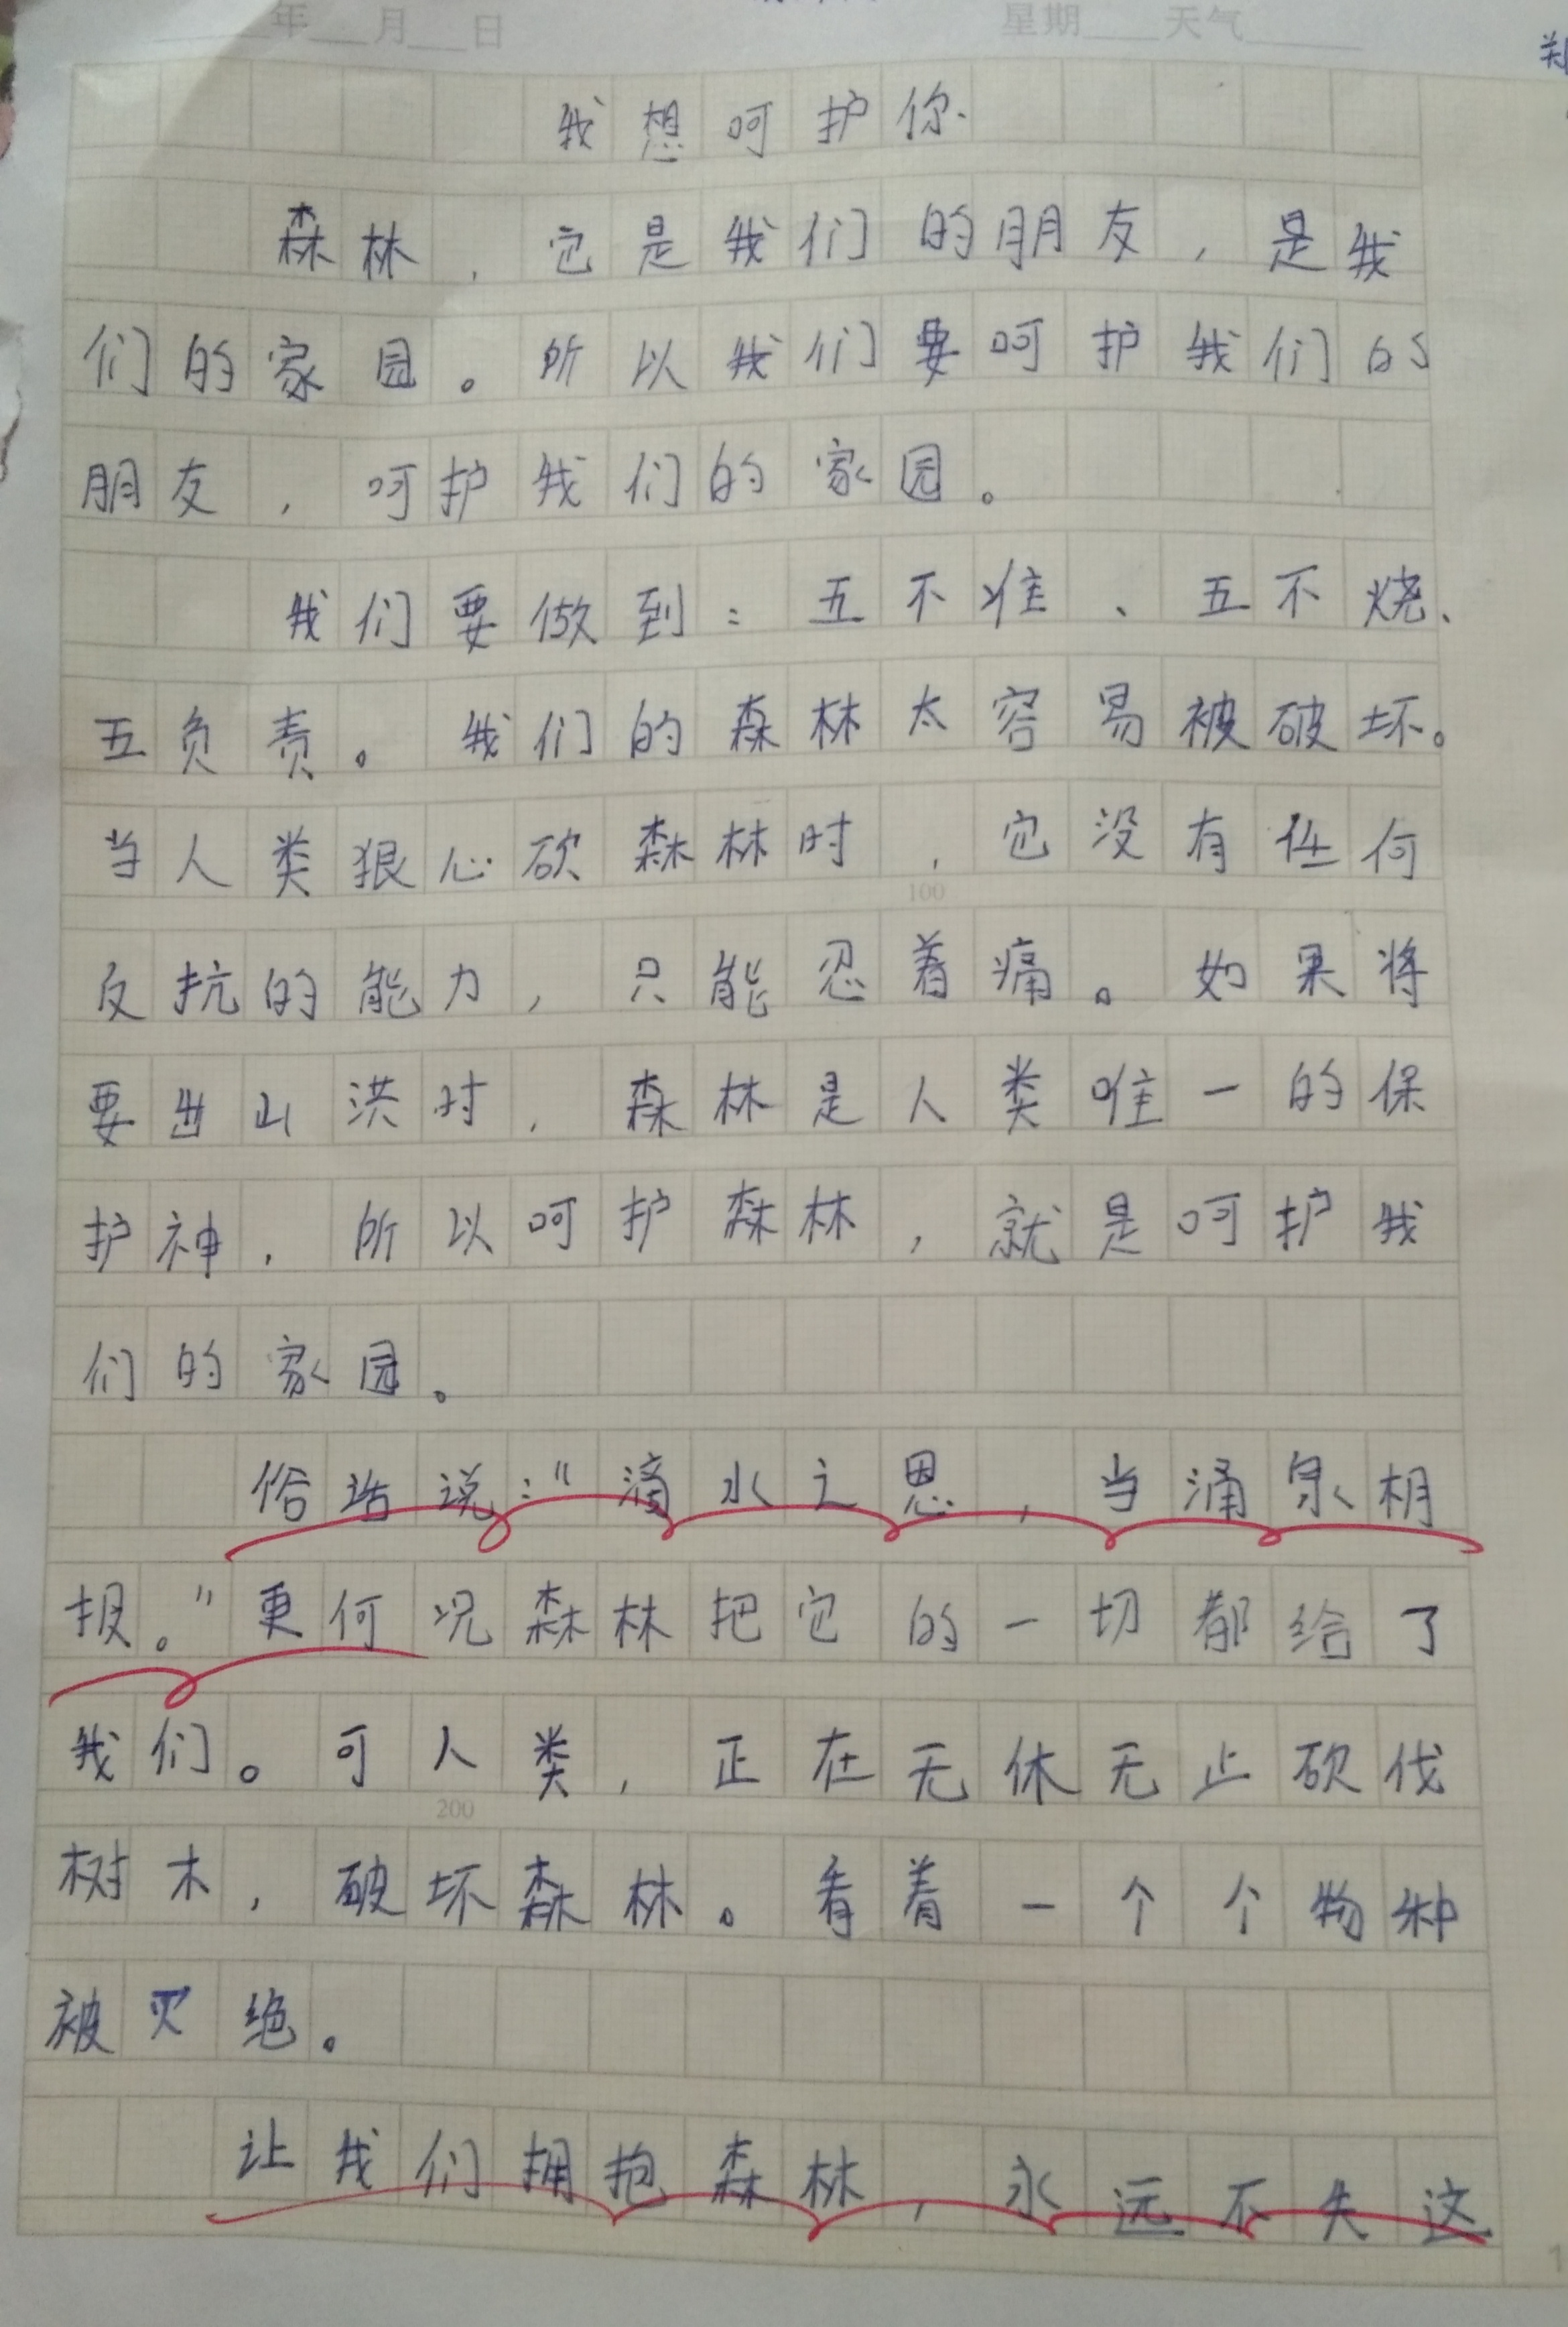 年 月 日 星期 天气
我想呵护你
森林，它是我们的朋友，是我
们的家园。所以我们要呵护我们的
朋友，呵护我们的家园。
我们要做到：五不准、五不烧、
五负责。我们的森林太容易被破坏。
当人类狠心砍森林时，它没有任何
100
反抗的能力，只能忍着痛。如果将
要出山洪时，森林是人类唯一的保
护神，所以呵护森林，就是呵护我
们的家园。
俗话说：“滴水之恩，当涌泉相
报。”更何况森林把它的一切都给了
我们。可人类，正在无休无止砍伐
200
树木，破坏森林。看着一个个物种
被灭绝。
让我们拥抱森林，永远不失这